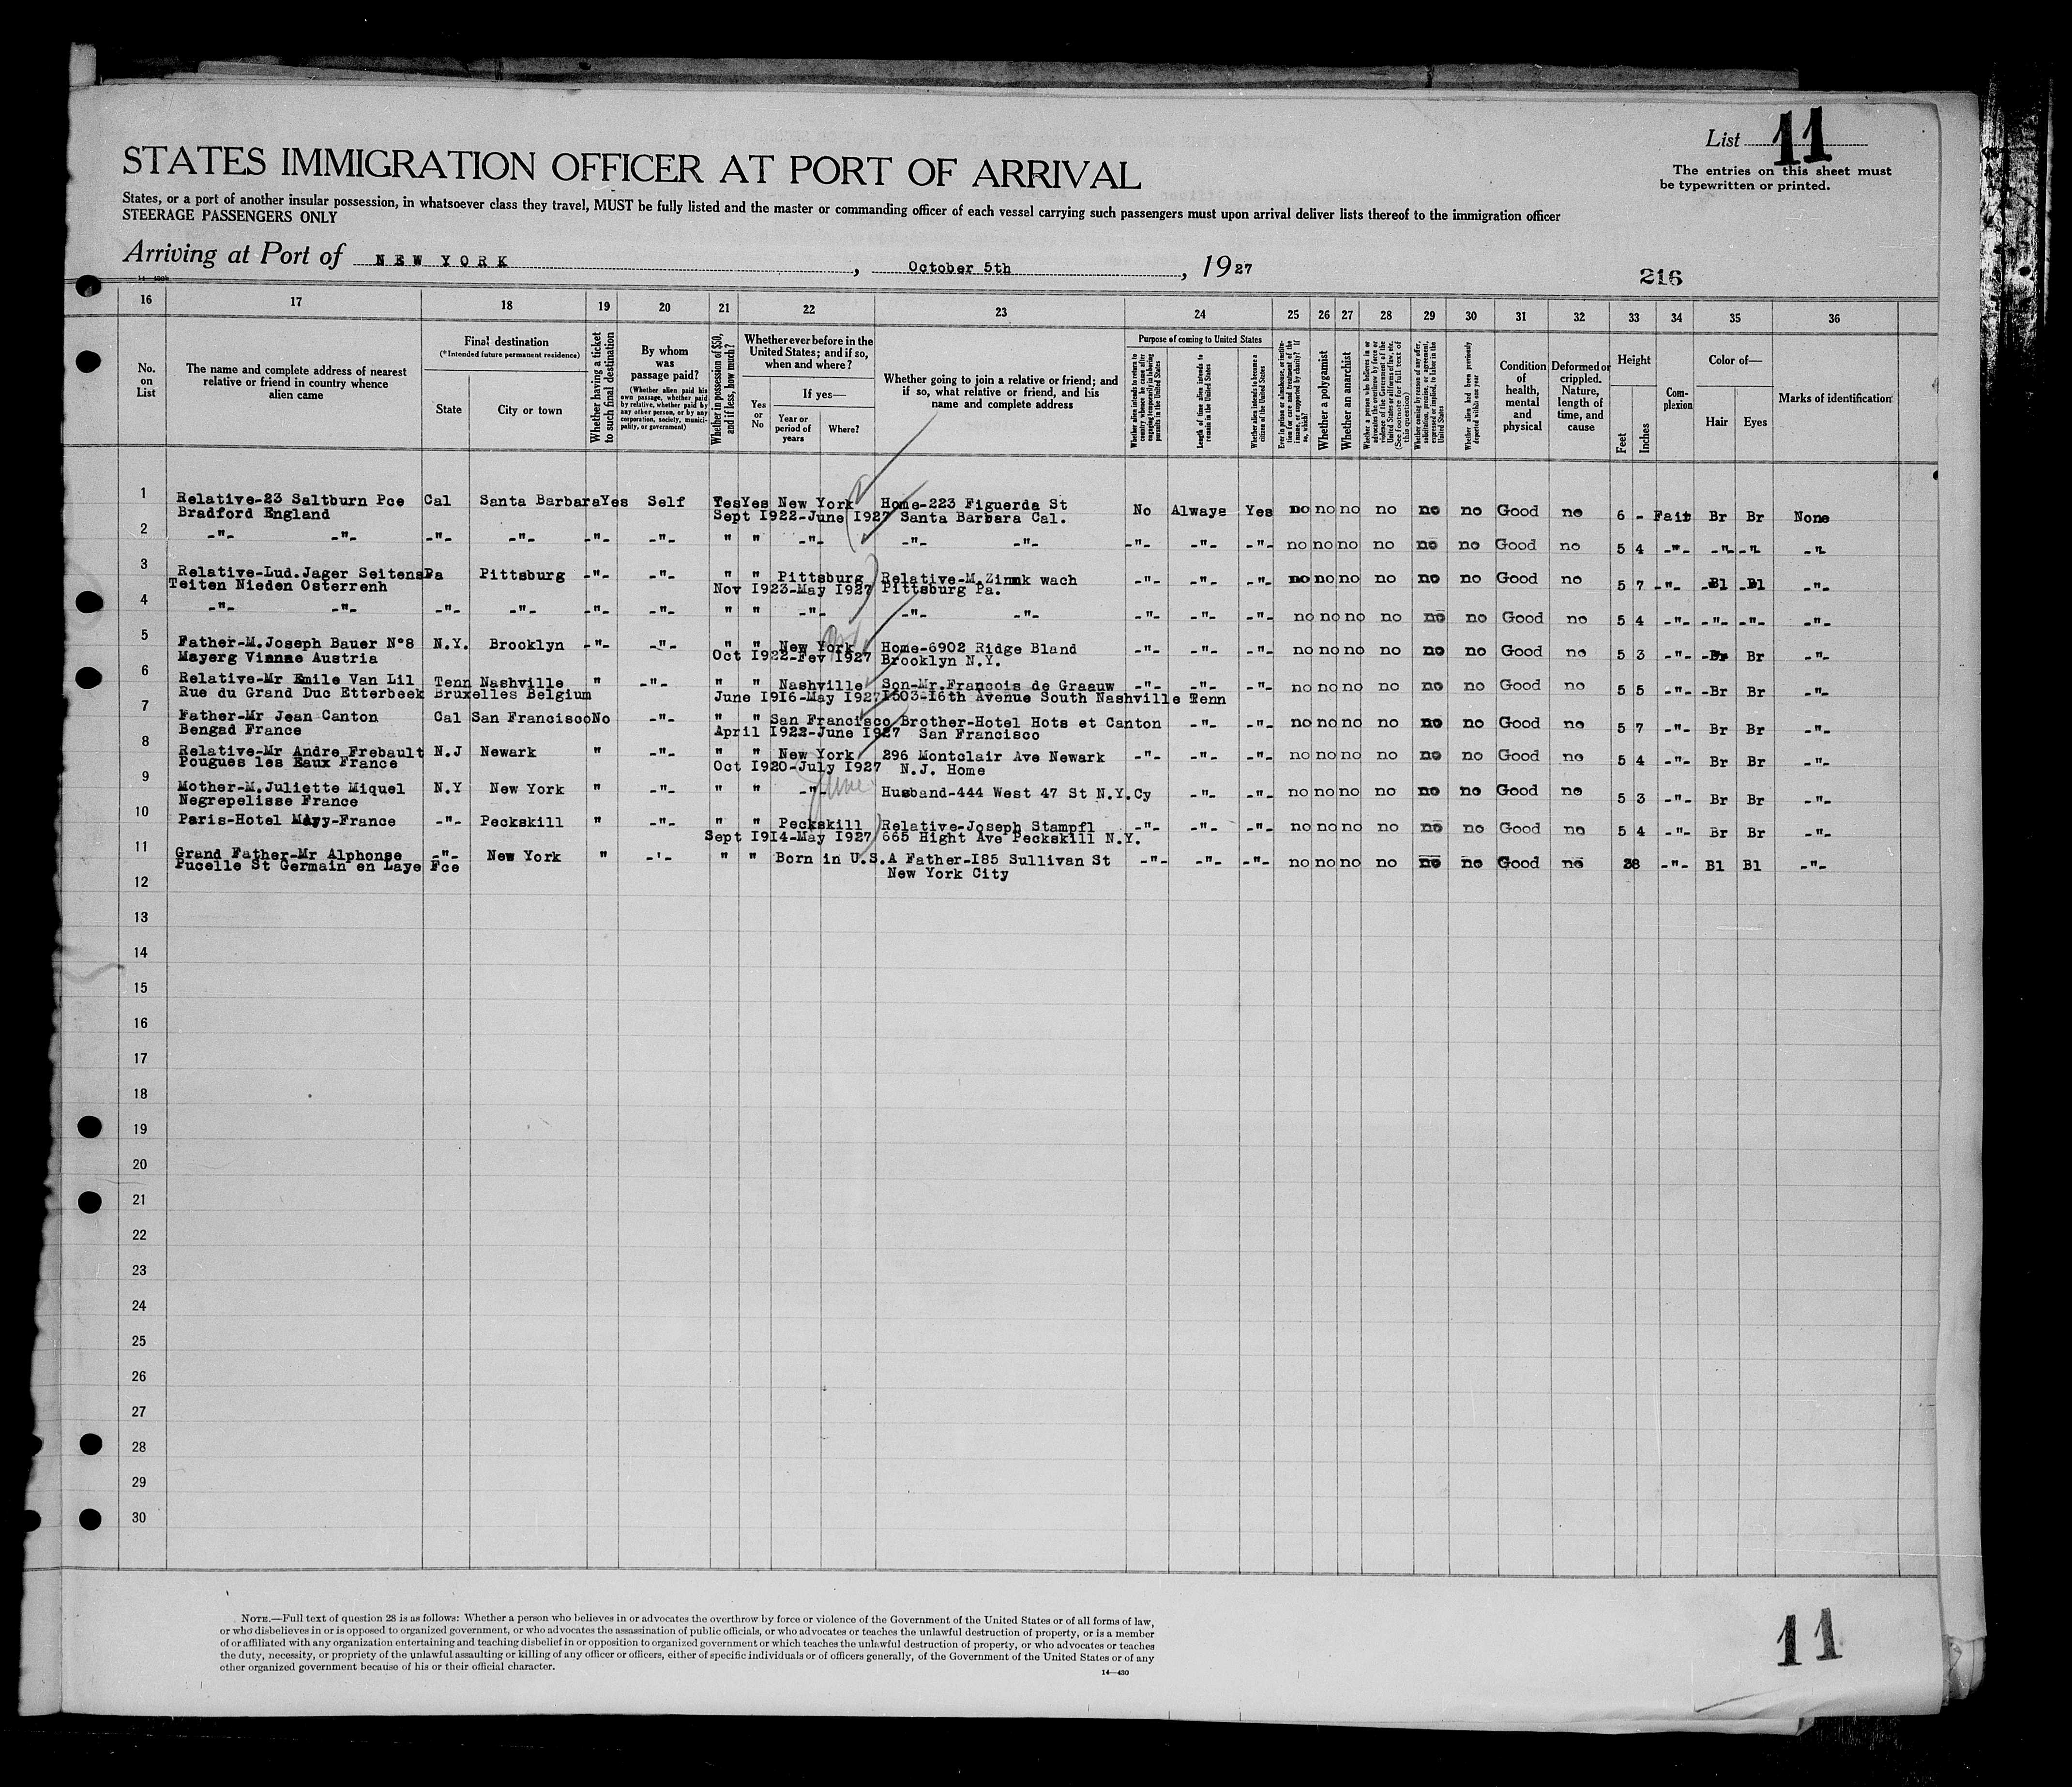 List 11
The entries on this sheet must
be typewritten or printed.
STATES IMMIGRATION OFFICER AT PORT OF ARRIVAL
States, or a port of another insular possession, in whatsoever class they travel, MUST be fully listed and the master or commanding officer of each vessel carrying such passengers must upon arrival deliver lists thereof to the immigration officer
STEERAGE PASSENGERS ONLY
Arriving at Port of NEW YORK, October 5th, 1927
216
16 17 18 19 20 21 22 23 24 25 26 27 28 29 30 31 32 33 34 35 36
No. on List
The name and complete address of nearest relative or friend in country whence alien came
Final destination
(*Intended future permanent residence)
State
City or town
Whether having a ticket to such final destination
By whom was passage paid?
(Whether alien paid his own passage, whether paid by relative, whether paid by any other person, or by any corporation, society, municipality, or government)
Whether in possession of $50, and if less, how much?
Whether ever before in the United States; and if so, when and where?
Yes or No
If yes—
Year or period of years
Where?
Whether going to join a relative or friend; and if so, what relative or friend, and his name and complete address
Purpose of coming to United States
Whether alien intends to return to country whence he came after engaging temporarily in laboring pursuits in the United States
Length of time alien intends to remain in the United States
Whether alien intends to become a citizen of the United States
Ever in prison or almshouse, or institution for care and treatment of the insane, or supported by charity? If so, which?
Whether a polygamist
Whether an anarchist
Whether a person who believes in or advocates the overthrow by force or violence of the Government of the United States or all forms of law, etc. (See footnote for full text of this question)
Whether coming by reason of any offer, solicitation, promise, or agreement, expressed or implied, to labor in the United States
Whether alien had been previously deported within one year
Condition of health, mental and physical
Deformed or crippled. Nature, length of time, and cause
Height
Feet
Inches
Complexion
Color of—
Hair
Eyes
Marks of identification
1 Relative-23 Saltburn Pce Cal Santa Barbara Yes Self Yes Yes New York Home-223 Figuerda St No Always Yes no no no no no no Good no 6 - Fair Br Br None
Bradford England Sept I922-June I927 Santa Barbara Cal.
2 -"- -"- -"- -"- -"- -"- " " -"- -"- -"- -"- -"- -"- no no no no no no Good no 5 4 -"- -"- -"- -"-
3 Relative-Lud.Jager Seitens Pa Pittsburg -"- -"- " " Pittsburg Relative-M.Zinnk wach -"- -"- -"- no no no no no no Good no 5 7 -"- Bl Bl -"-
Teiten Nieden Osterrenh Nov I923-May I927 Pittsburg Pa.
4 -"- -"- -"- -"- -"- -"- " " -"- -"- -"- -"- -"- -"- no no no no no no Good no 5 4 -"- -"- -"- -"-
5 Father-M.Joseph Bauer N°8 N.Y. Brooklyn -"- -"- " " New York Home-6902 Ridge Bland -"- -"- -"- no no no no no no Good no 5 3 -"- Br Br -"-
Mayerg Vianne Austria Oct I922-Fev I927 Brooklyn N.Y.
6 Relative-Mr Emile Van Lil Tenn Nashville " -"- " " Nashville Son-Mr.Francois de Graauw -"- -"- -"- no no no no no no Good no 5 5 -"- Br Br -"-
Rue du Grand Duc Etterbeek Bruxelles Belgium June I9I6-May I927 I603-I6th Avenue South Nashville Tenn
7 Father-Mr Jean Canton Cal San Francisco No -"- " " San Francisco Brother-Hotel Hots et Canton -"- -"- no no no no no no Good no 5 7 -"- Br Br -"-
Bengad France April I922-June I927 San Francisco
8 Relative-Mr Andre Frebault N.J Newark " -"- " " New York 296 Montclair Ave Newark -"- -"- -"- no no no no no no Good no 5 4 -"- Br Br -"-
Pougues les Eaux France Oct I920-July I927 N.J. Home
9 Mother-M.Juliette Miquel N.Y New York " -"- " " -"- Husband-444 West 47 St N.Y.Cy -"- -"- no no no no no no Good no 5 3 -"- Br Br -"-
Negrepelisse France June
10 Paris-Hotel Mayy-France -"- Peckskill " -"- " " Peckskill Relative-Joseph Stampfl -"- -"- -"- no no no no no no Good no 5 4 -"- Br Br -"-
Sept I9I4-May I927 665 Hight Ave Peckskill N.Y.
11 Grand Father-Mr Alphonse -"- New York " -'- " " Born in U.S.A Father-I85 Sullivan St -"- -"- -"- no no no no no no Good no 38 -"- Bl Bl -"-
Pucelle St Germain en Laye Fce New York City
12
13
14
15
16
17
18
19
20
21
22
23
24
25
26
27
28
29
30
NOTE.—Full text of question 28 is as follows: Whether a person who believes in or advocates the overthrow by force or violence of the Government of the United States or of all forms of law,
or who disbelieves in or is opposed to organized government, or who advocates the assassination of public officials, or who advocates or teaches the unlawful destruction of property, or is a member
of or affiliated with any organization entertaining and teaching disbelief in or opposition to organized government or which teaches the unlawful destruction of property, or who advocates or teaches
the duty, necessity, or propriety of the unlawful assaulting or killing of any officer or officers, either of specific individuals or of officers generally, of the Government of the United States or of any
other organized government because of his or their official character.
14—430
11